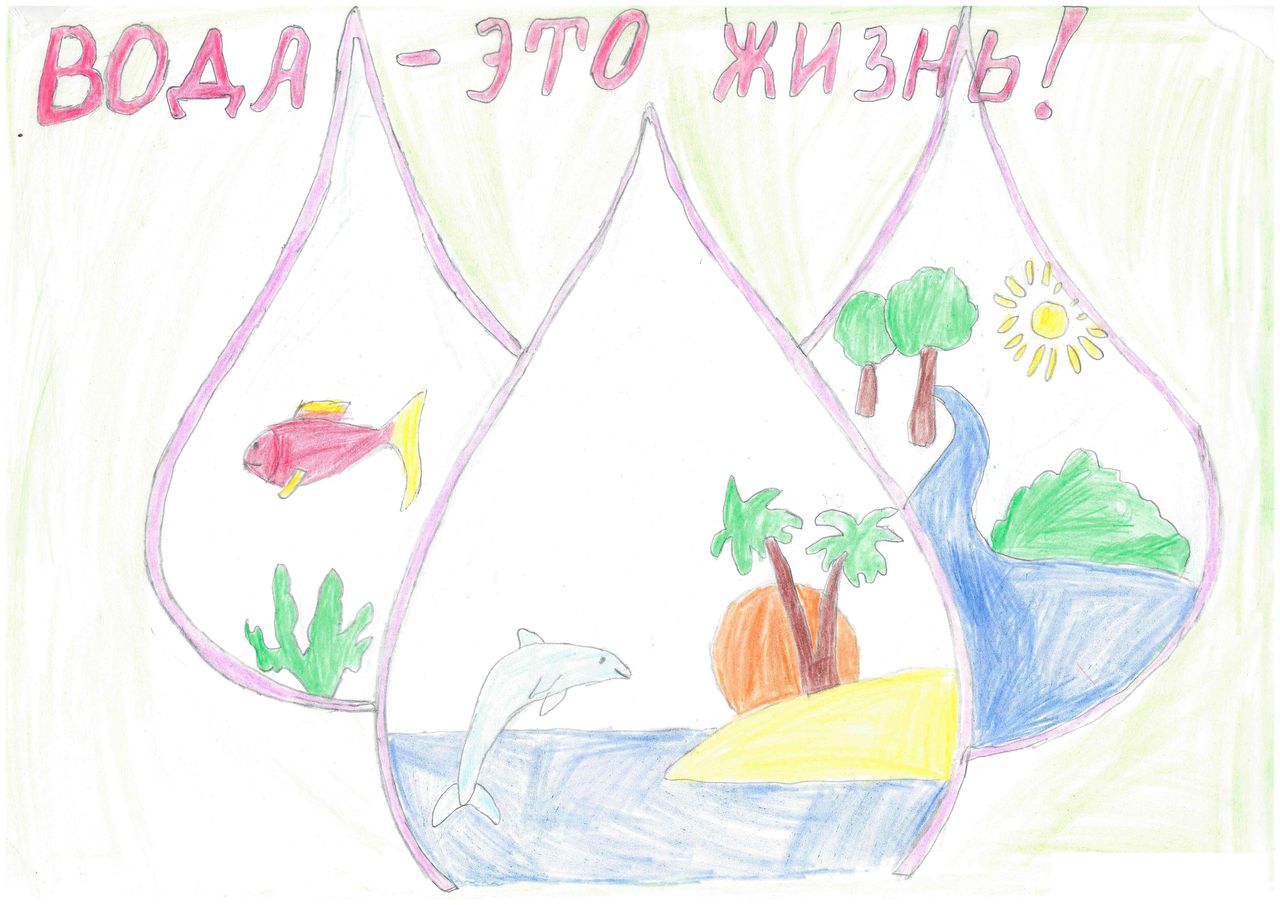 ВОДА - ЭТО ЖИЗНЬ!